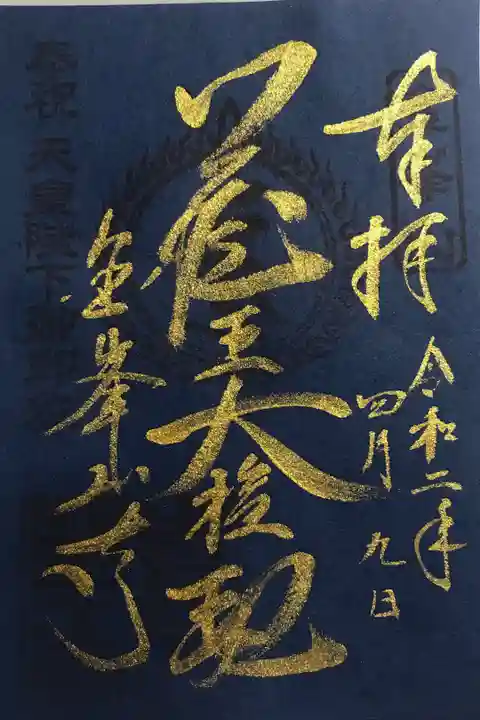 奉拝
令和二年
四月九日
蔵王大権現
金峯山寺
奉祝 天皇陛下御